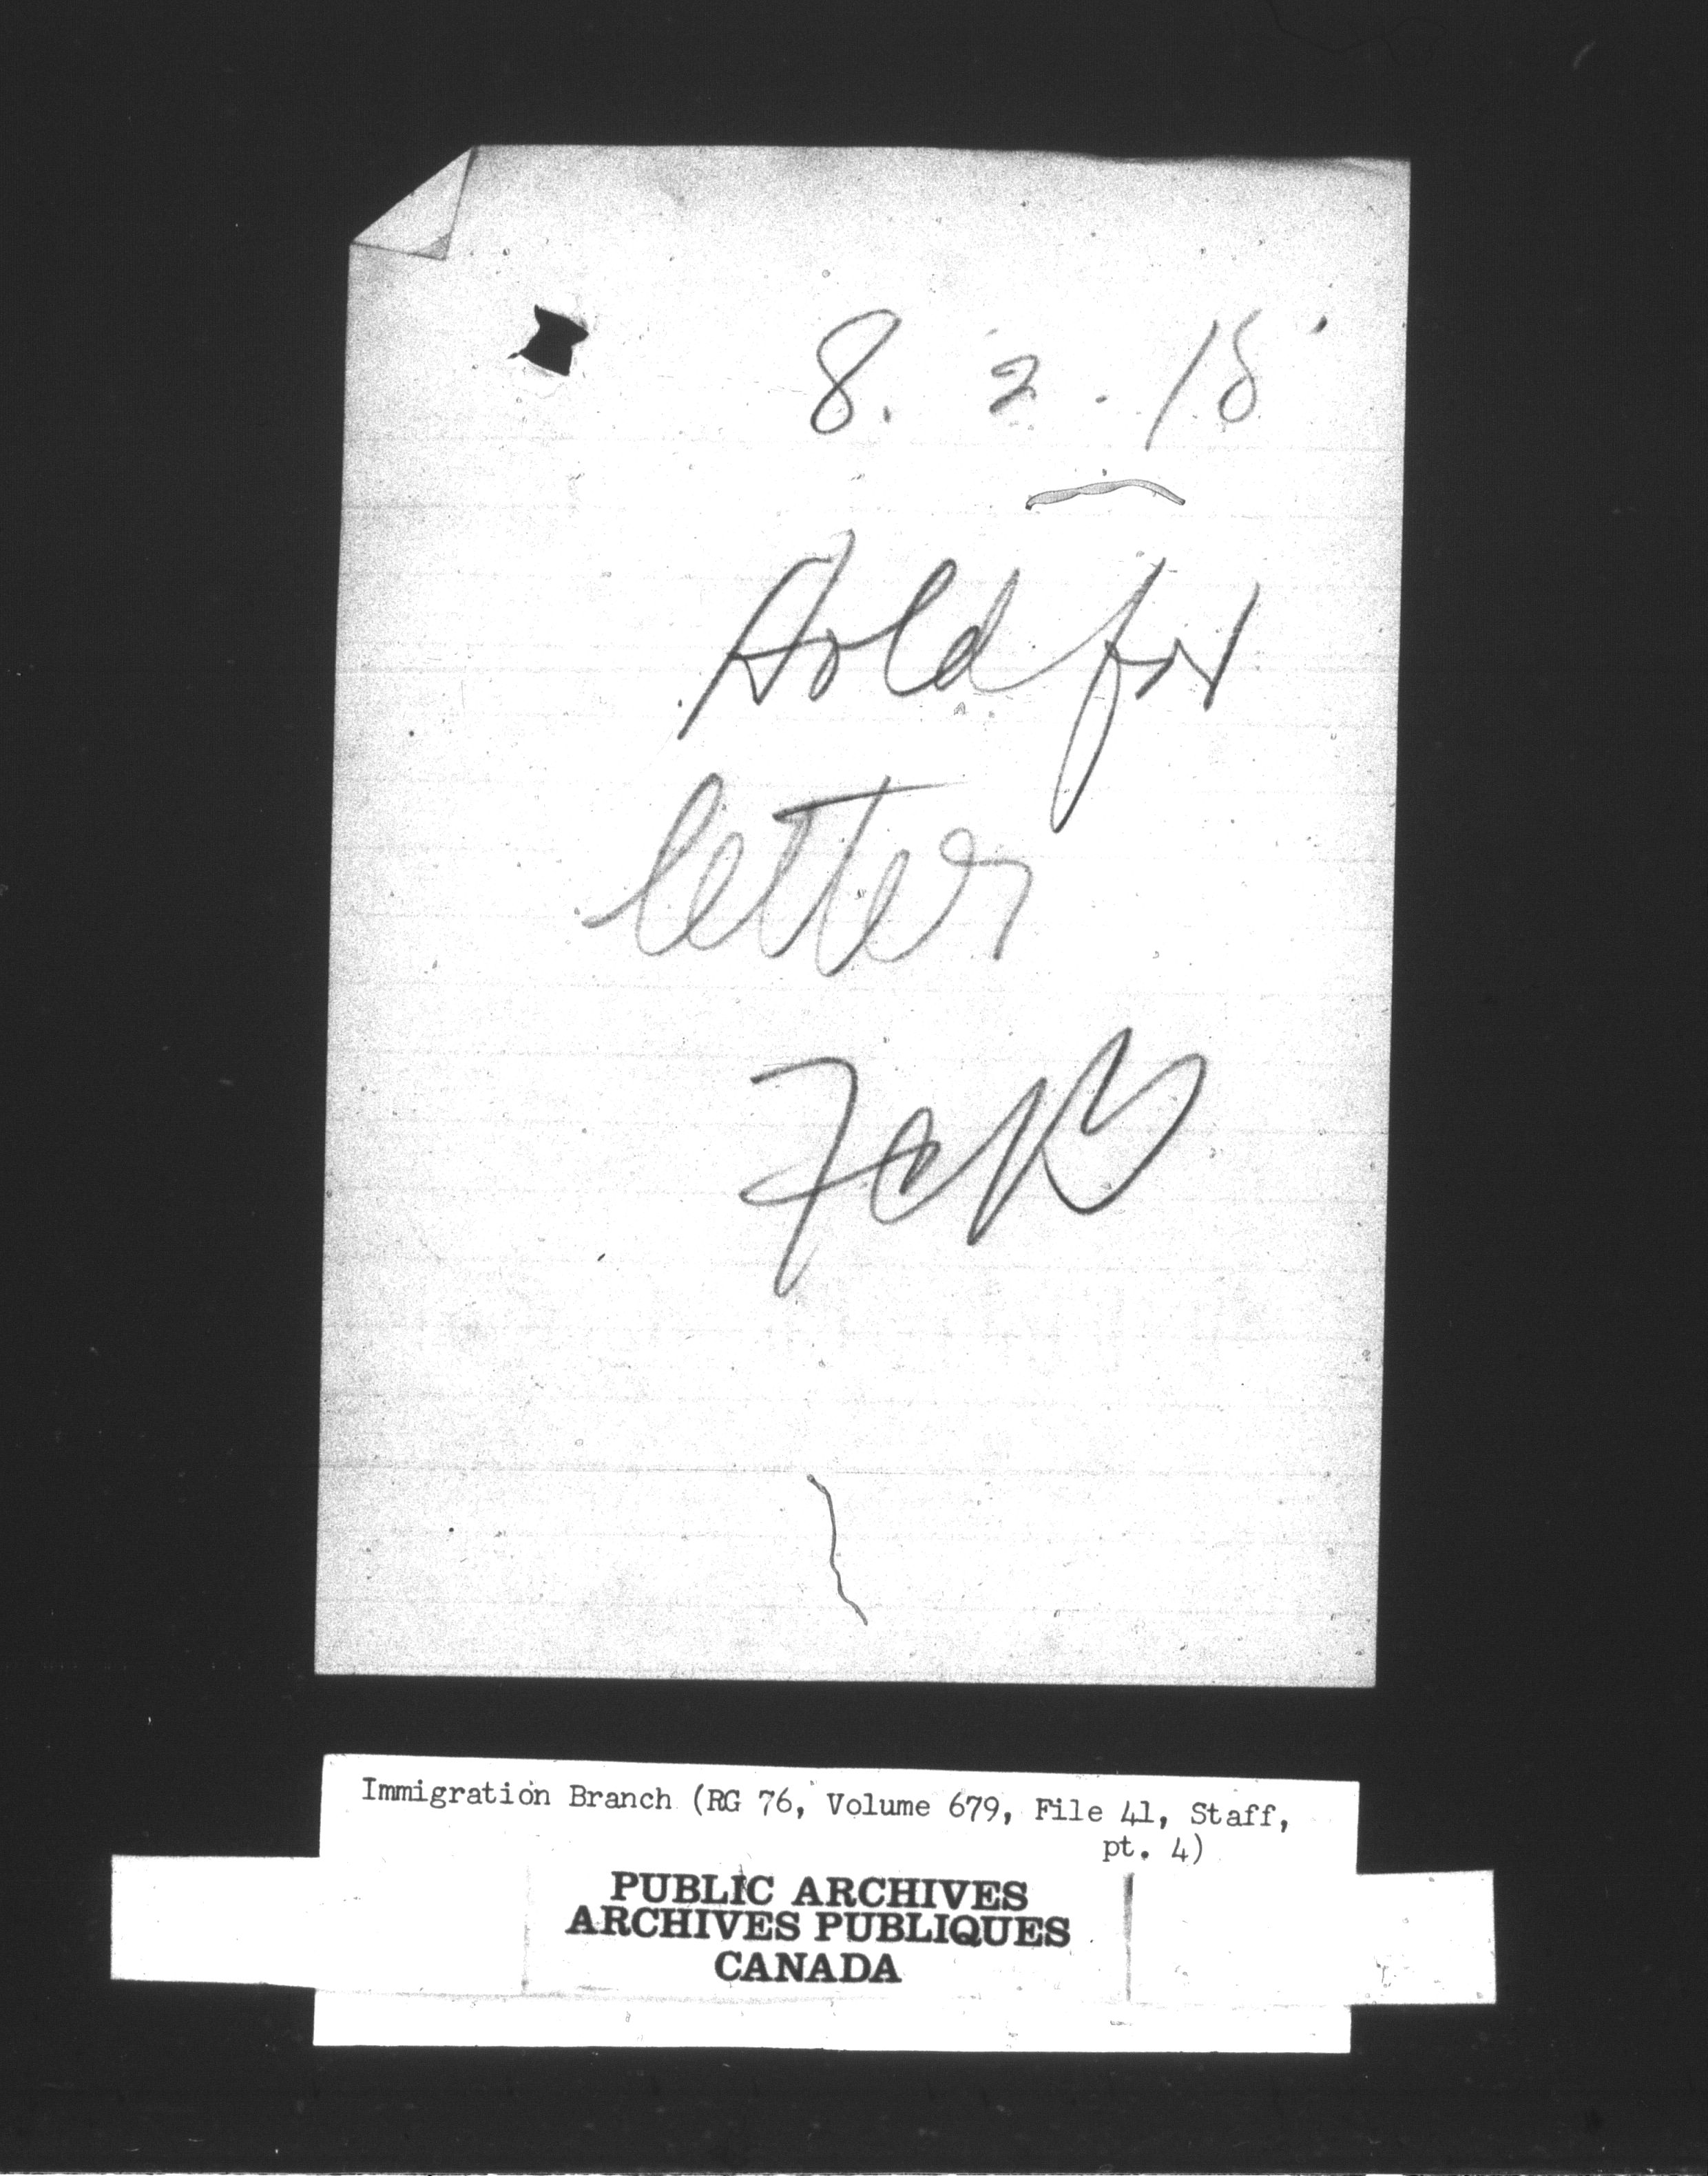 8. 2. 18
Hold for
letter
FCB
Immigration Branch (RG 76, Volume 679, File 41, Staff,
pt. 4)
PUBLIC ARCHIVES
ARCHIVES PUBLIQUES
CANADA